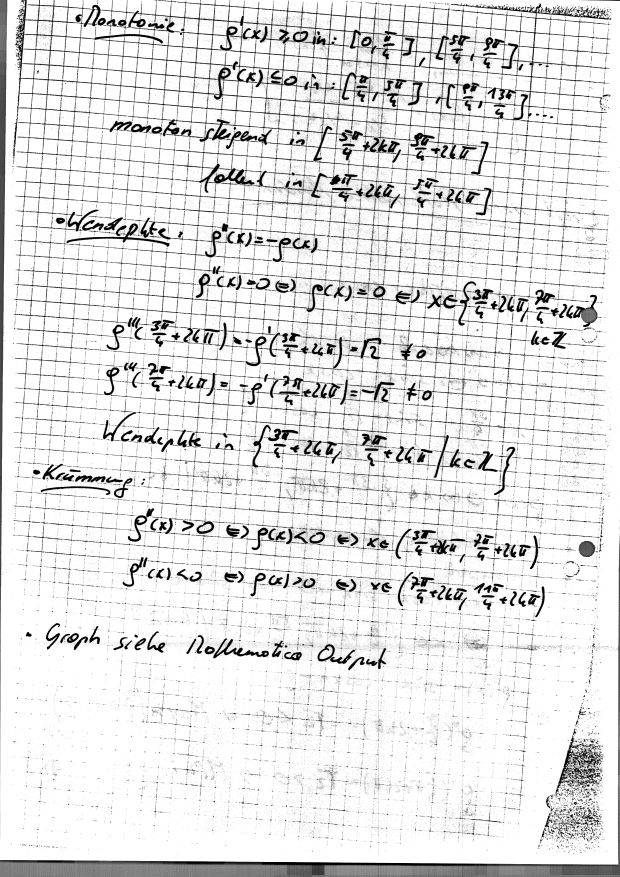 • Monotonie: ρ'(x) ≥ 0 in: [0, π/4], [5π/4, 9π/4], ...
ρ'(x) ≤ 0 in: [π/4, 5π/4], [9π/4, 13π/4], ...
monoton steigend in [5π/4 + 2kπ, 9π/4 + 2kπ]
fallend in [π/4 + 2kπ, 5π/4 + 2kπ]
• Wendepkte: ρ''(x) = -ρ(x)
ρ''(x) = 0 ⇔ ρ(x) = 0 ⇔ x ∈ {3π/4 + 2kπ, 7π/4 + 2kπ}
k ∈ ℤ
ρ'''(3π/4 + 2kπ) = -ρ'(3π/4 + 2kπ) = √2 ≠ 0
ρ'''(7π/4 + 2kπ) = -ρ'(7π/4 + 2kπ) = -√2 ≠ 0
Wendepkte in {3π/4 + 2kπ, 7π/4 + 2kπ | k ∈ ℤ}
• Krümmung:
ρ''(x) > 0 ⇔ ρ(x) < 0 ⇔ x ∈ (3π/4 + 2kπ, 7π/4 + 2kπ)
ρ''(x) < 0 ⇔ ρ(x) > 0 ⇔ x ∈ (7π/4 + 2kπ, 11π/4 + 2kπ)
• Graph siehe Mathematica Output